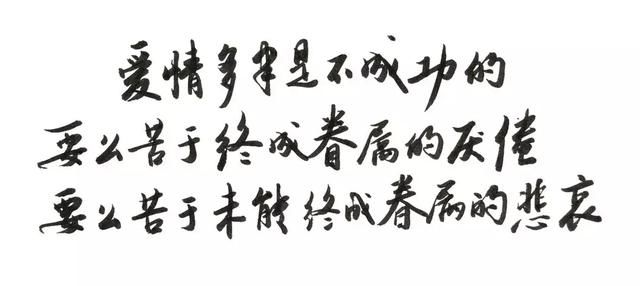 爱情多半是不成功的
要么苦于终成眷属的厌倦
要么苦于未能终成眷属的悲哀